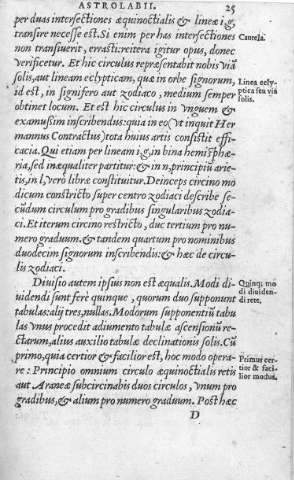 ASTROLABII. 25
per duas intersectiones æquinoctialis & lineæ i,g,
transire necesse est. Si enim per has intersectiones
non transiuerit, errasti: reitera igitur opus, donec Cautela.
verificetur. Et hic circulus repræsentabit nobis viā
solis, aut lineam eclypticam, quæ in orbe signorum, Linea ecly-
id est, in signifero aut zodiaco, medium semper ptica seu via
obtinet locum. Et est hic circulus in vnguem & solis.
examussim inscribendus: quia in eo (vt inquit Her
mannus Contractus) tota huius artis consistit effi-
cacia. Qui etiam per lineam i,g, in bina hemisphæ-
ria, sed inæqualiter partitur: & in n, principiū arie-
tis, in l, vero libræ constituitur. Deinceps circino mo
dicum constricto super centro zodiaci describe se-
cūdum circulum pro gradibus singularibus zodia-
ci. Et iterum circino restricto, duc tertium pro nu-
mero graduum. & tandem quartum pro nominibus
duodecim signorum inscribendis: & hæc de circu-
lis zodiaci.
Diuisio autem ipsius non est æqualis. Modi di- Quinq; mo
uidendi sunt fere quinque, quorum duo supponunt di diuiden-
tabulas: alij tres, nullas. Modorum supponentiū tabu di rete.
las vnus procedit adiumento tabulæ ascensionū re-
ctarum, alius auxilio tabulæ declinationis solis. Cū
primo, quia certior & facilior est, hoc modo opera- Primus cer-
re: Principio omnium circulo æquinoctialis retis tior & faci-
aut Araneæ subcircinabis duos circulos, vnum pro lior modus.
gradibus, & alium pro numero graduum. Post hæc
D